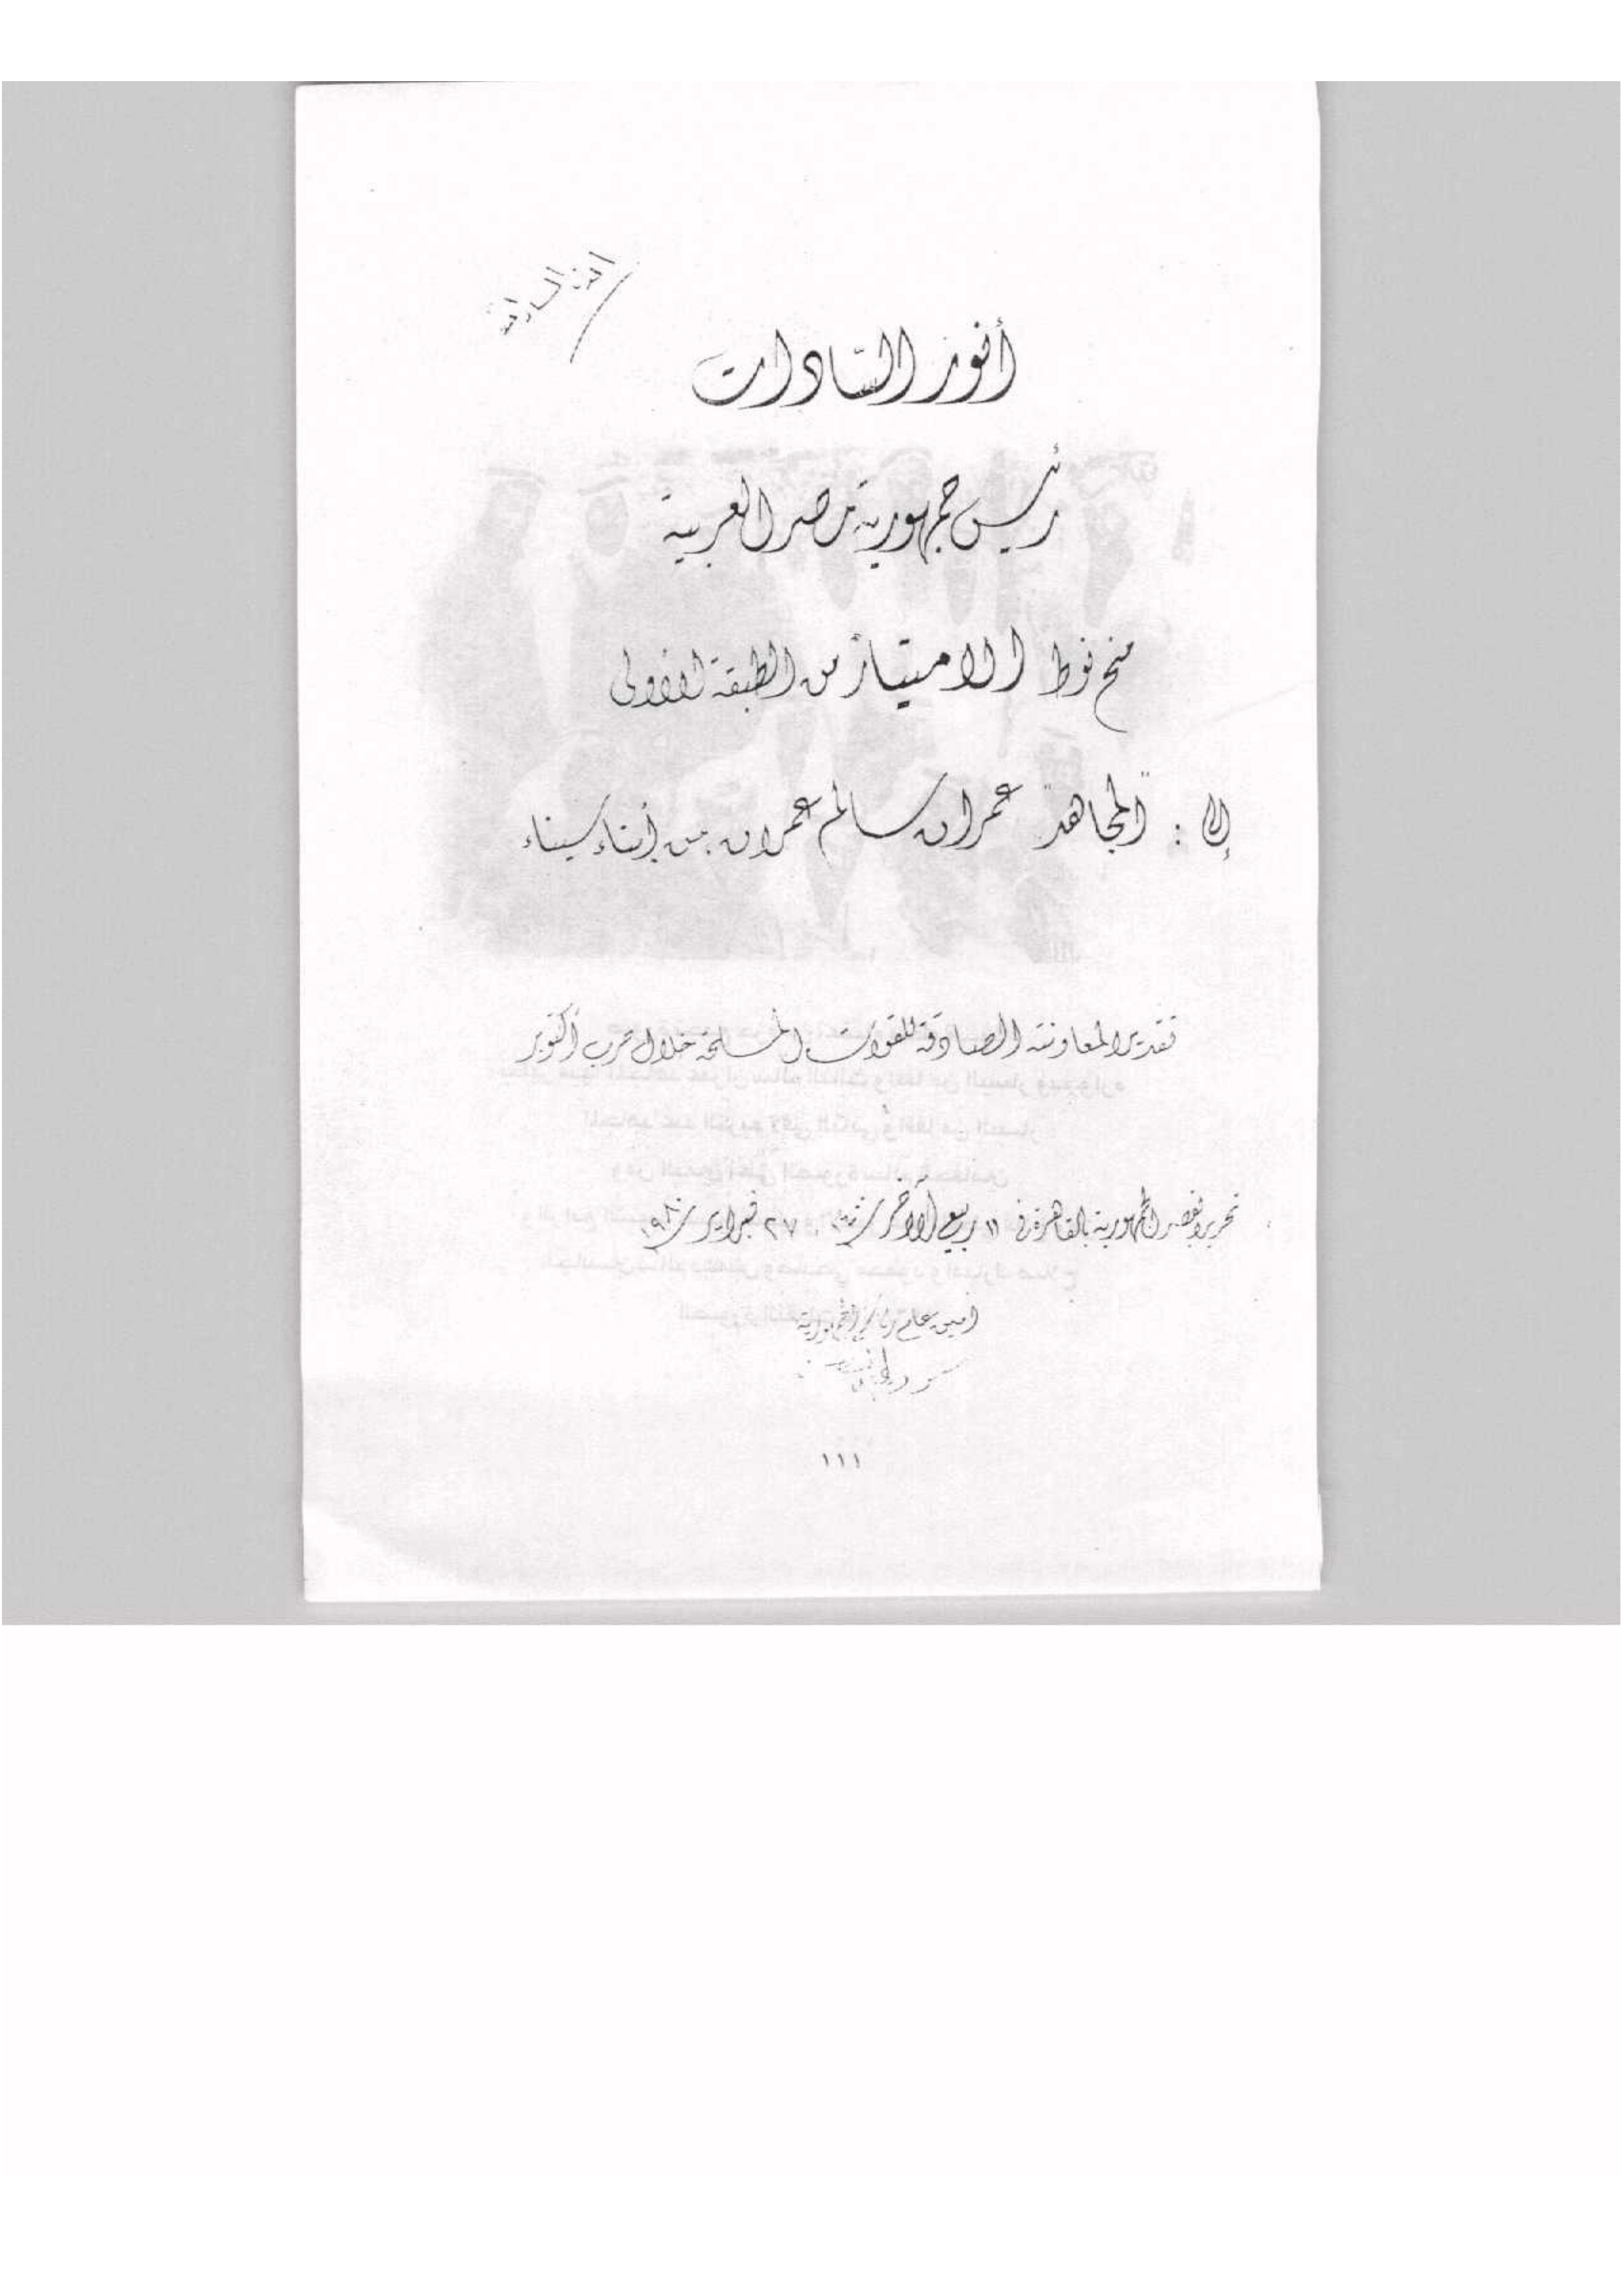 أنور السادات
أنور السّادات
رئيس جمهورية مصر العربية
منح نوط الامتياز من الطبقة الأولى
إلى : "المجاهد" عمران سالم عمران من أبناء سيناء
تقديرا لمعاونته الصادقة للقوات المسلحة خلال حرب أكتوبر
تحريرا بقصر الجمهورية بالقاهرة في ١١ ربيع الآخر سنة ١٤٠٠، ٢٧ فبراير سنة ١٩٨٠
أمين عام رئاسة الجمهورية
١١١